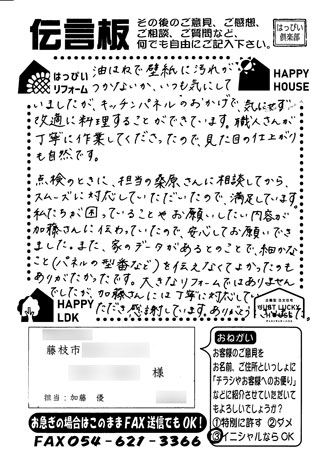 伝言板
その後のご意見、ご感想、
ご相談、ご質問など、
何でも自由にご記入下さい。
はっぴぃ
倶楽部
はっぴぃ
リフォーム
HAPPY
HOUSE
油はねで壁紙に汚れが
つかないか、いつも気にして
いましたが、キッチンパネルのおかげで、気にせず
快適に料理することができています。職人さんが
丁寧に作業してくださったので、見た目の仕上がり
も自然です。
点検のときに、担当の桑原さんに相談してから、
スムーズに対応していただいたので、満足しています。
私たちが困っていることやお願いしたい内容が
加藤さんに伝わっていたので、安心してお願いでき
ました。また、家のデータがあるとのことで、細かな
こと(パネルの型番など)を伝えなくてよかったのも
ありがたかったです。大きなリフォームではありません
でしたが、加藤さんには丁寧に対応して
いただき感謝しています。ありがとう
HAPPY
LDK
JUST LUCKY
HOUSE
藤枝市
様
担当:加藤 優
おねがい
お客様のご意見を
お名前、ご住所といっしょに
「チラシやお客様へのお便り」
などに紹介させていただいて
もよろしいでしょうか?
①特別に許す ②ダメ
③イニシャルならOK
お急ぎの場合はこのままFAX送信でもOK!
FAX054-621-3366